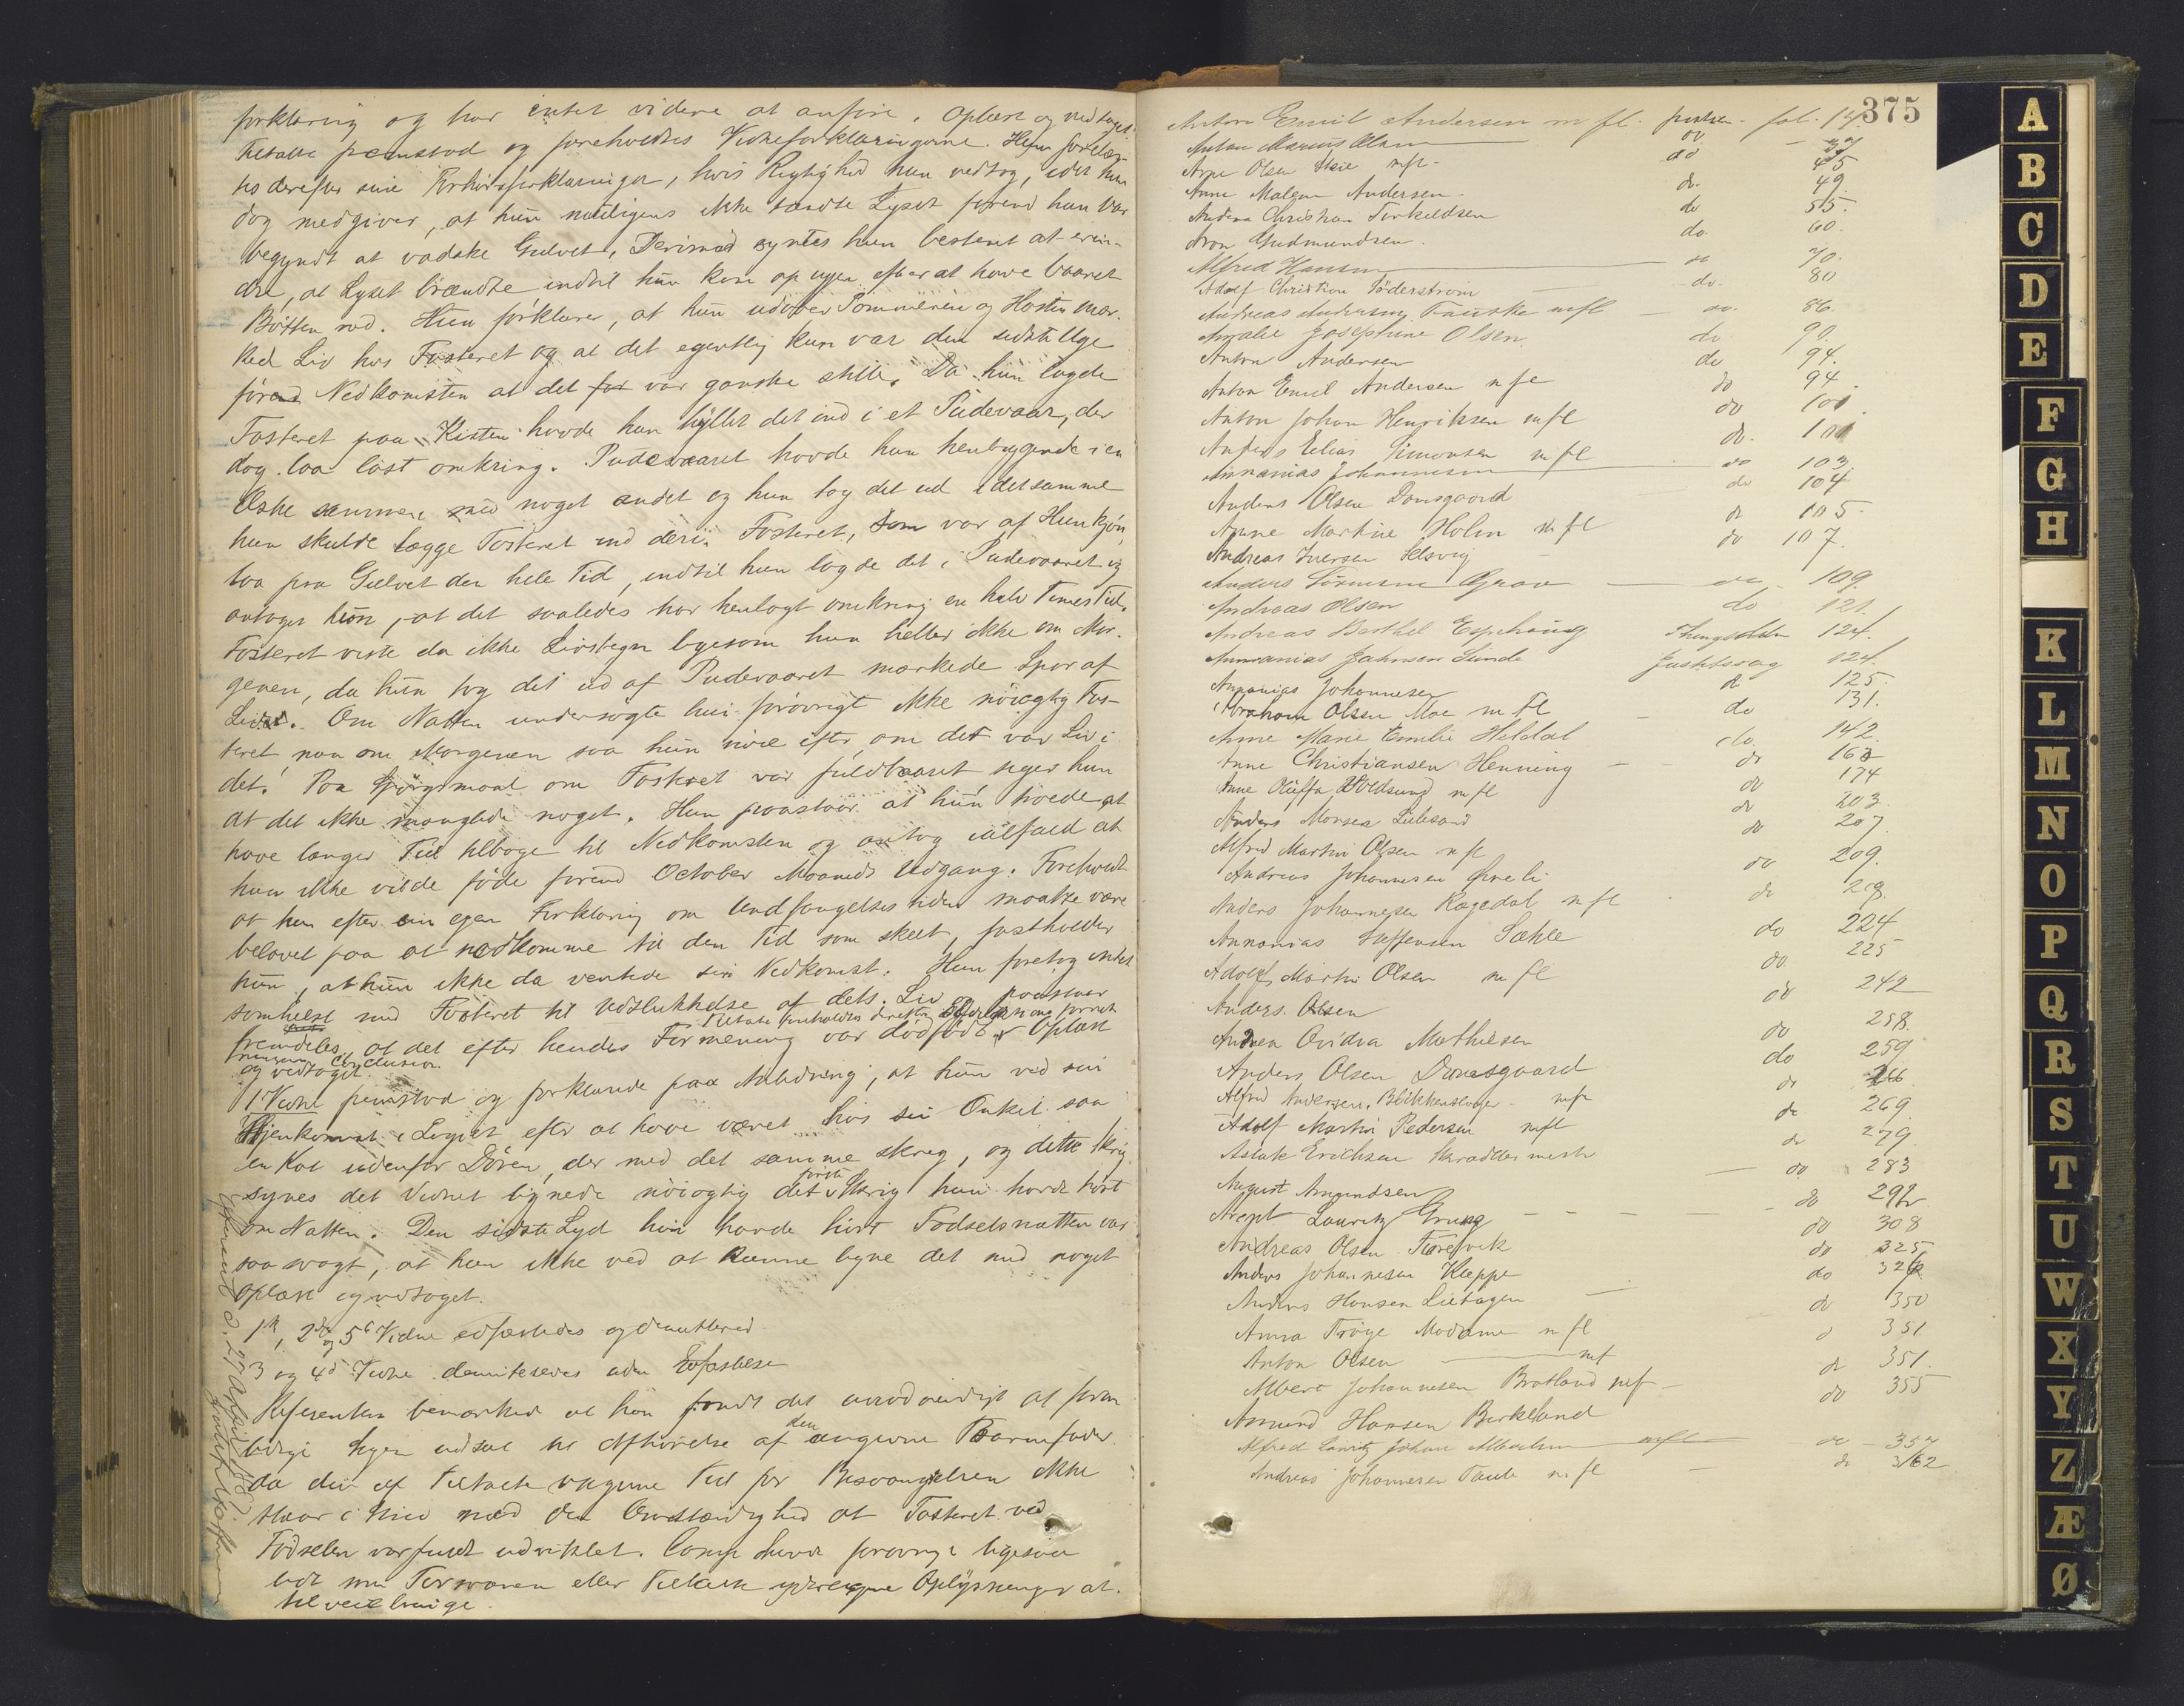 forklaring og har intet videre at anføre. Oplæst og vedtaget.
Tiltalte fremstod og foreholdtes Vidneforklaringerne. Hun forelæg-
tes derefter sine Forhørsforklaringer, hvis Rigtighed hun vedtog, idet hun
dog medgiver, at hun muligens ikke tændte Lyset førend hun var
begyndt at vadske Gulvet. Derimod syntes hun bestemt at erin-
dre, at Lyset brændte indtil hun kom op igjen efter at have baaret
Bøtten ned. Hun forklarer, at hun udover Sommeren og Høsten mær-
ked Liv hos Fosteret og at det egentlig kun var den sidste Uge
førend Nedkomsten at det var ganske stille. Da hun lagde
Fosteret paa Kisten havde hun hyllet det ind i et Pudevaar, der
dog laa løst omkring. Pudevaaret havde hun henliggende i en
Æske sammen med noget andet og hun tog det ud idetsamme
hun skulde lægge Fosteret ind deri. Fosteret, som var af Hunkjøn,
laa paa Gulvet den hele Tid, indtil hun lagde det i Pudevaaret og
antager hun, at det saaledes har henlagt omkring en halv Times Tid.
Fosteret viste da ikke Livstegn ligesom hun heller ikke om Mor-
genen, da hun tog det ud af Pudevaaret mærkede Spor af
Liv. Om Natten undersøgte hun forøvrigt ikke nøiagtig Fos-
teret men om Morgenen saa hun nøie efter, om det var Liv i
det. Paa Spørgsmaal om Fosteret var fuldbaaret siger hun
at det ikke manglede noget. Hun paastaar at hun troede at
have længer Tid tilbage til Nedkomsten og antog ialfald at
hun ikke vilde føde førend October Maaneds Udgang. Foreholdt
at hun efter sin egen Forklaring om Undfangelsestiden maatte være
belavet paa at nedkomme til den Tid som skeet, fastholder
hun, at hun ikke da ventede sin Nedkomst. Hun foretog intet
somhelst med Fosteret til Udslukkelse af dets Liv paastaar
fremdeles, at det efter hendes Formening var dødfødt. Oplæst
og vedtaget.
1 Vidne fremstod og forklarede paa Anledning, at hun ved sin
Hjemkomst i Logiet efter at have været hos sin Onkel saa
en Kat udenfor Døren, der med det samme skreg, og dette Skrig
synes det Vidnet lignede nøiagtig det første Skrig hun havde hørt
om Natten. Den sidste Lyd hun havde hørt Fødselsnatten var
saa svagt, at hun ikke ved at kunne ligne det med noget
Oplæst og vedtaget.
1ste, 2det og 5te Vidne edfæstedes og dimitteredes
3 og 4de Vidne dimitteredes uden Edfæstelse
Referenten bemærked at han fandt det unødvendigt at
Sagen udsat til Afhørelse af den angivne Barnefader
da den af Tiltalte angivne Tid for Besvangrelsen ikke
staar i Strid med den Omstændighed at Fosteret ved
Fødselen var fuldt udviklet. forøvrigt ligesaa
lidt som Forsvaren eller Tiltalte yderligere Oplysninger at
tilveiebringe.
375
Anton Emil Andersen m fl. justisn. fol.
Anton Marius do
Arne Olsen m fl. do 45
Anne Malene Andersen do. 49.
Andrea Christian Terkeldsen do 55.
Aron Gudmundsen. do. 60.
Alfred Hansen do 70.
Adolf Christian Söderstrøm do. 80
Andreas Andersen Fauske mfl do. 86.
Amalie Josephine Olsen. do 90.
Anton Andersen do 94.
Anton Emil Andersen m fl do 94.
Anton Johan Henriksen m fl do 101.
Anders Elias Simonsen m fl do. 101
Annanias Johannesen do 103
Anders Olsen Domsgaard do 104
Anne Martine Holm m fl do 105
Andreas Iversen Selsvig do 107.
Anders Sørensen Grav do 109.
Andreas Olsen do 121.
Andreas Berthel Espehaug 124.
Annanias Jahnsen Sunde Justitssag 124.
Annanias Johannesen do 125.
Abraham Olsen Moe m fl do 131.
Anne Marie Emilie Heldal do 142.
Anne Christiansen Henning do 163
Anne m fl do 174
Anders Monsen do 203.
Alfred Martin Olsen m fl do 207
Andreas Johannesen do 209.
Anders Johannesen Kagedal m fl do 218.
Annanias Steffensen Sæhle do 224
Adolf Martin Olsen m fl do 225
Anders Olsen do 242
Andrea Ovidia Mathiesen do 258.
Anders Olsen Domsgaard do 259.
Alfred Andersen, Blikkenslager m fl do 266
Adolf Martin Pedersen m fl do 269
Aslak Erichsen Skræddermester do 279.
August Amundsen do 283
Arent Lauritz Grung do 292
Andreas Olsen do 308
Anders Johannesen Kleppe do 325
Anders Hansen do 326
Anna Frøye Madame m fl do 350
Anton Olsen mf do 351
Albert Johannesen Bratland mf do 351.
Amund Hansen Birkeland do 355
Alfred Lauritz Johan m fl do 357
Andreas Johannesen Taule m fl do 362
A
B
C
D
E
F
G
H
K
L
M
N
O
P
Q
R
S
T
U
W
X
Y
Z
Æ
Ø